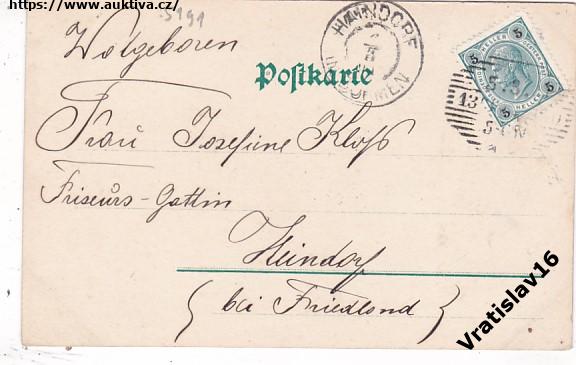 https://www.auktiva.cz/
5191
Wolgeboren
HAINDORF
IN BÖHMEN
Postkarte
5
HELLER
13
Frau Josefine Kloss
Friseurs-Gattin
Heindorf
( bei Friedlond )
Vratislav16